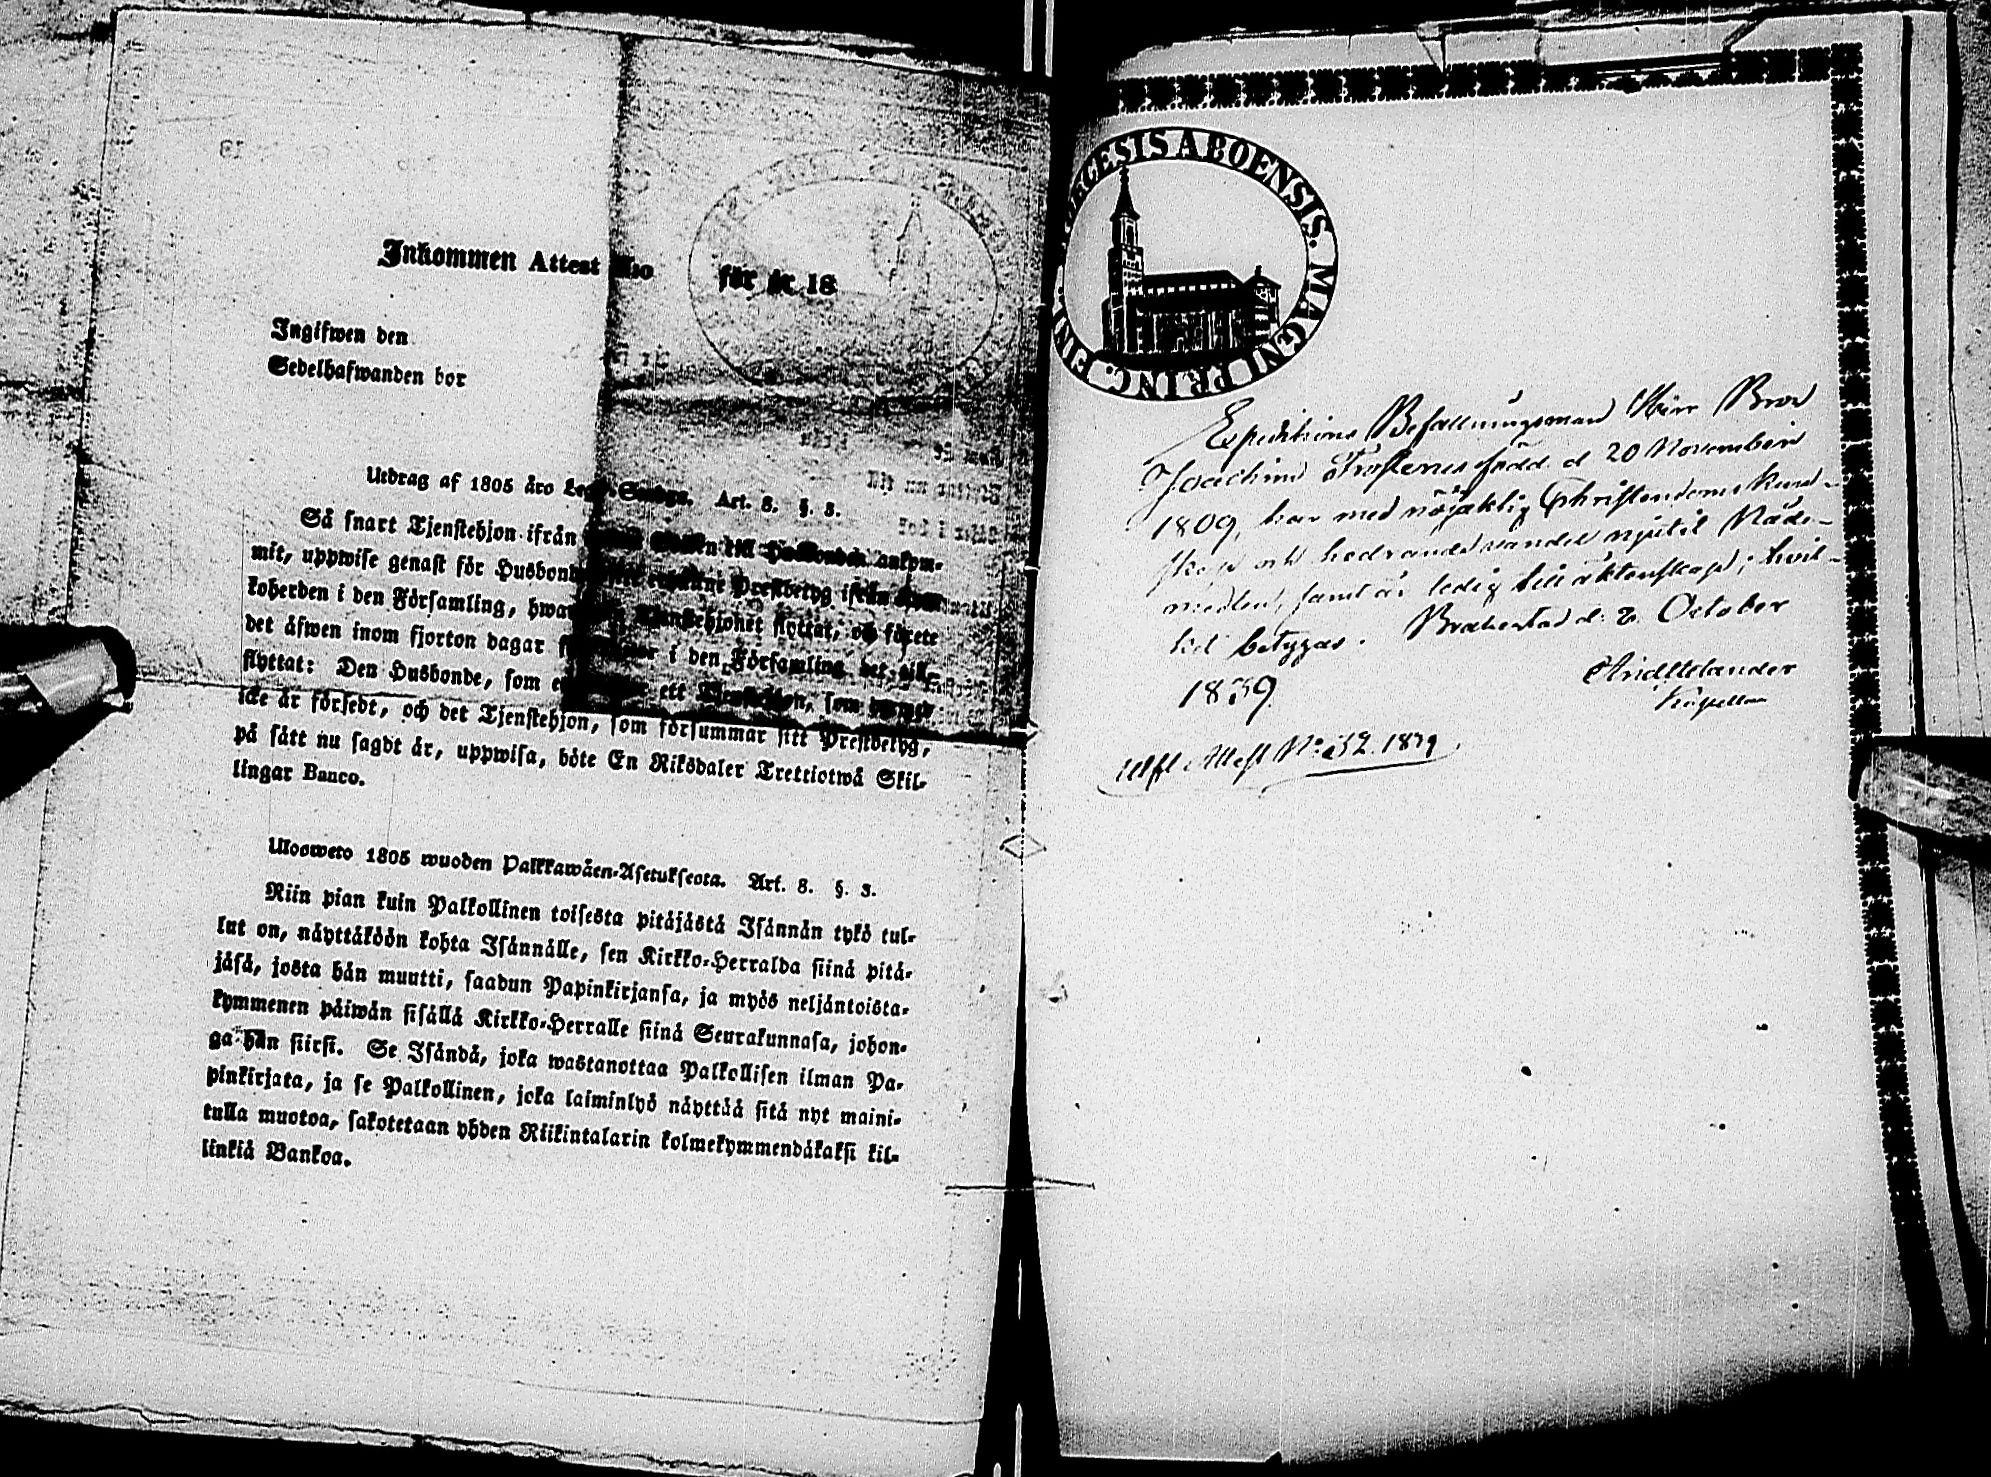 Inkommen Attest N:o för år 18
Ingifwen den
Sedelhafwanden bor
Utdrag af 1805 års Art. 8. §. 3.
Så snart Tjenstehjon ifrån till Husbonden ankom-
mit, uppwise genast för Husbonden Prestbetyg ifrån
koherden i den Församling, hwar Tjenstehjonet flyttat, och förete
det äfwen inom fjorton dagar i den Församling det
flyttat: Den Husbonde, som ett Tjenstehjon, som dermed
icke är försedt, och det Tjenstehjon, som försummar sitt Prestbetyg,
på sätt nu sagdt är, uppwisa, böte En Riksdaler Trettiotwå Skil-
lingar Banco.
Ulosweto 1805 wuoden Palkkawäen-Asetuksesta. Art. 8. §. 3.
Niin pian kuin Palkollinen toisesta pitäjästä Isännän tykö tul-
lut on, näyttäköön kohta Isännälle, sen Kirkko-Herralda siinä pitä-
jäsä, josta hän muutti, saadun Papinkirjansa, ja myös neljäntoista-
kymmenen päiwän sisällä Kirkko-Herralle siinä Seurakunnasa, johon-
ga hän siirsi. Se Isändä, joka wastanottaa Palkollisen ilman Pa-
pinkirjata, ja se Palkollinen, joka laiminlyö näyttää sitä nyt maini-
tulla muotoa, sakotetaan yhden Riikintalarin kolmekymmendäkaksi kil-
linkiä Bankoa.
DIOECESIS ABOENSIS. MAGNI PRINC. FINL.
Expeditions Befallningsman Herr Bror
Joachim född d 20 November
1809, har med nöjaktig Christendoms kund-
skap och hedrande vandel njutit Nåde-
medlen, samt är ledig till äktenskap; hvil-
ket betygas. Brahestad d. 8 October
1839.
Kapellan
Utfl. Attest N:o 1839